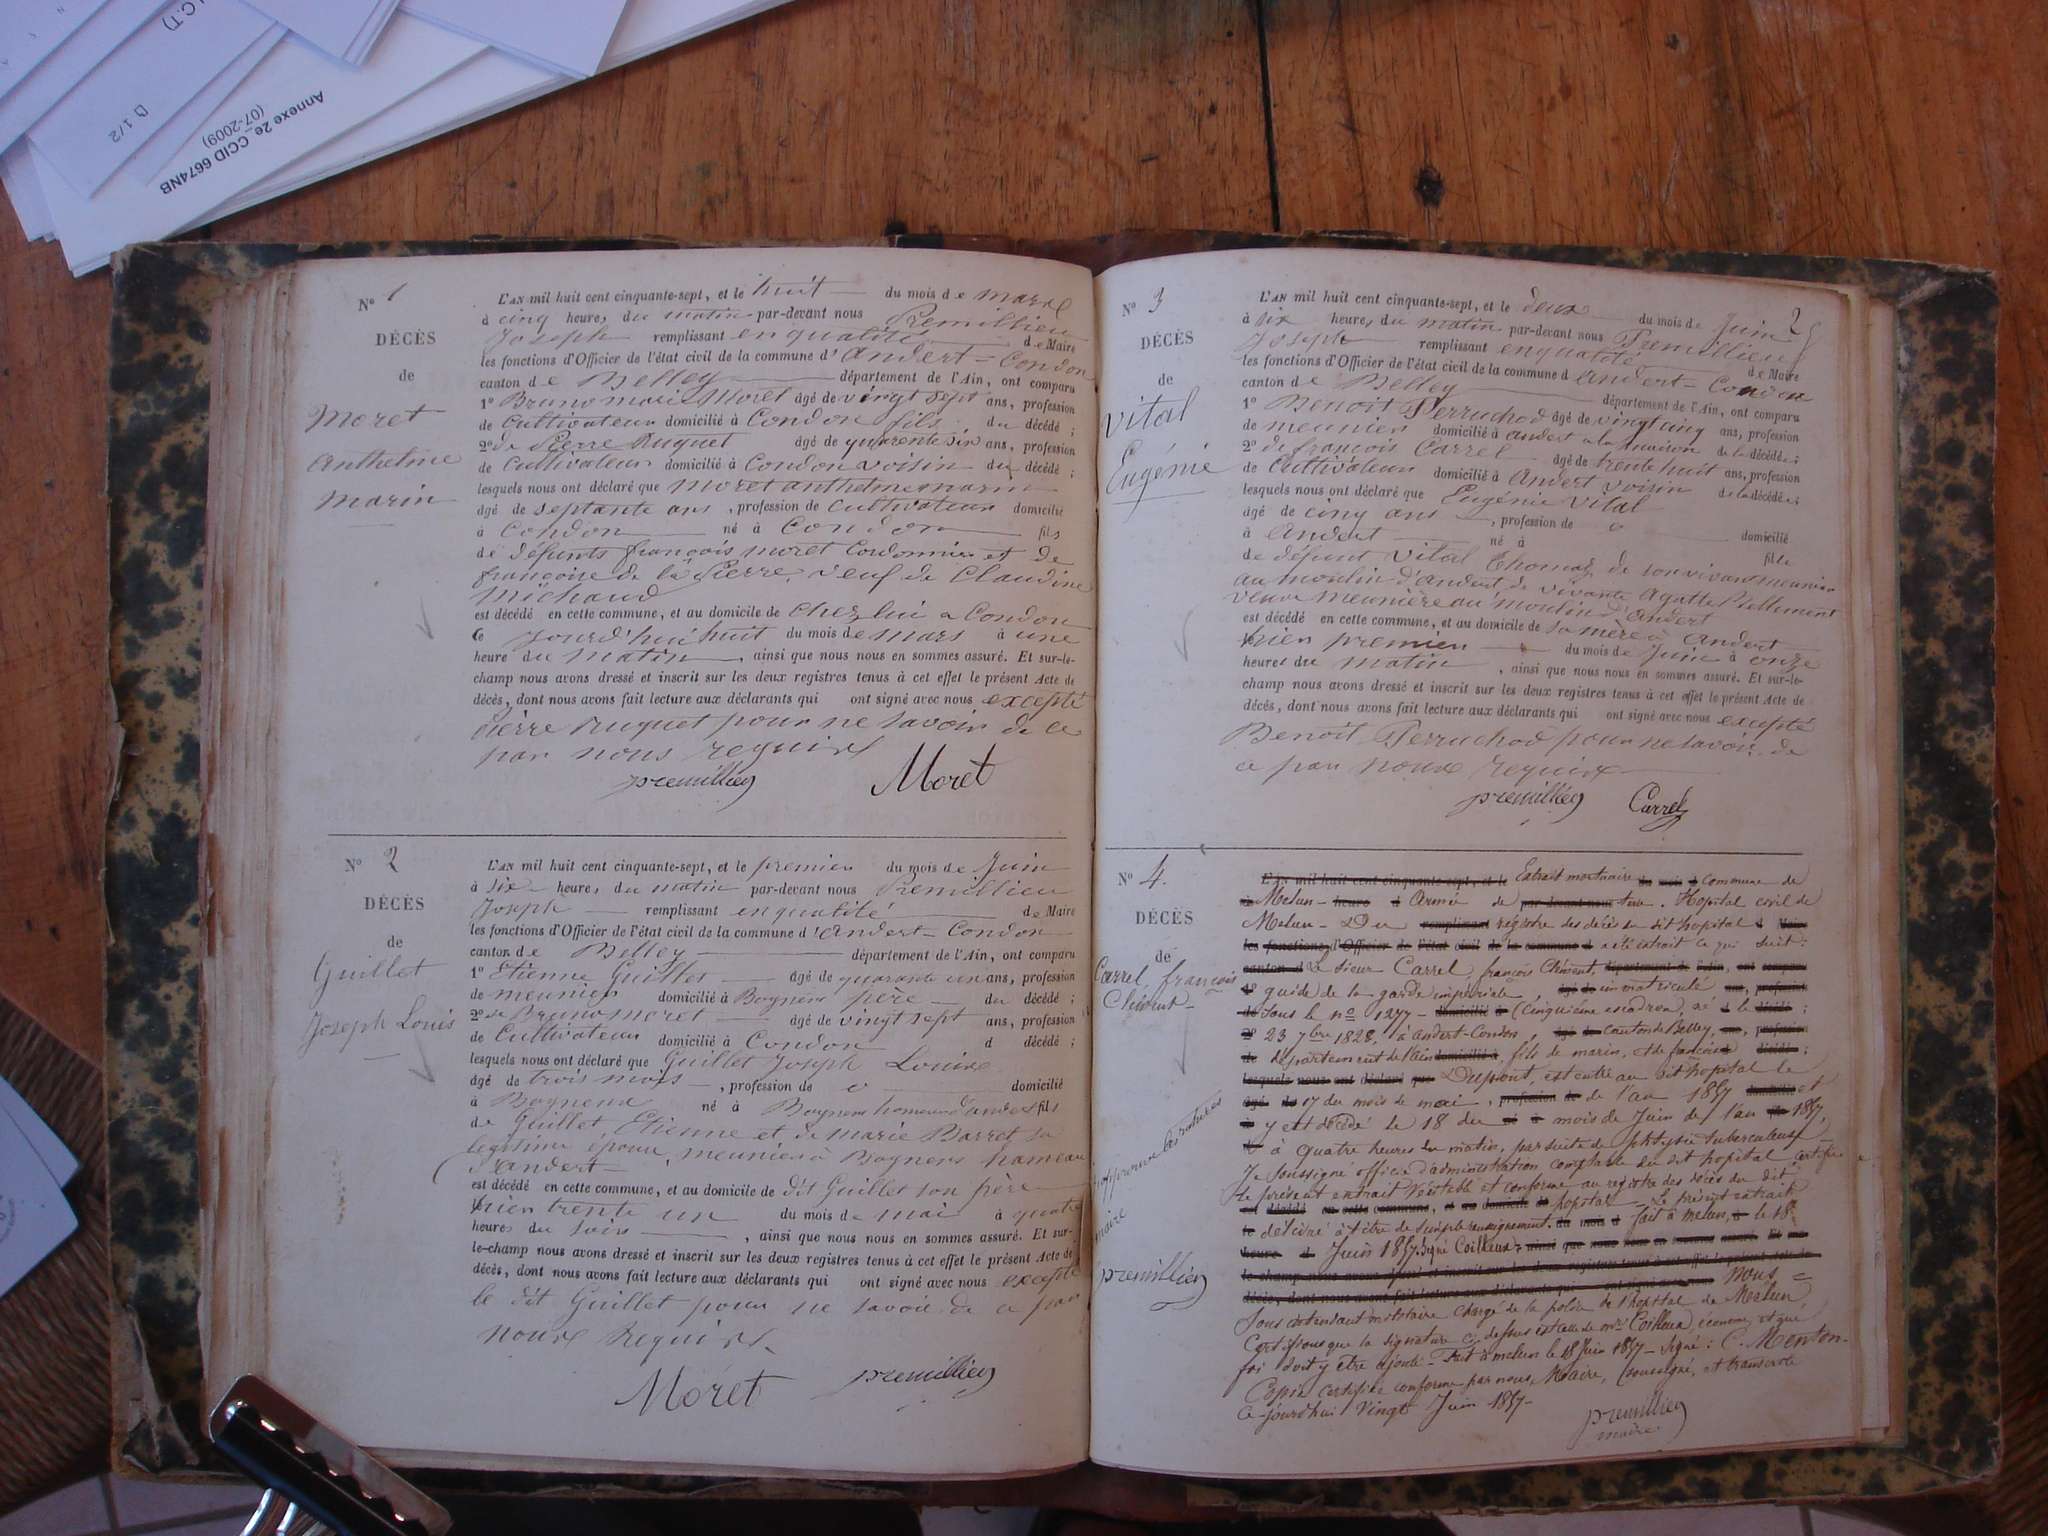 C.T)
1/2
Annexe 2e_CCID 6674NB
(07-2009)
N° 1
DÉCÈS
de
Moret
Anthelme
Marin
L'AN mil huit cent cinquante-sept, et le huit du mois de mars
à cinq heures du matin par-devant nous Premillieu
Joseph remplissant en qualité de Maire
les fonctions d'Officier de l'état civil de la commune d'Andert-Condon
canton de Belley département de l'Ain, ont comparu
1° Bruno marie Moret âgé de vingt sept ans, profession
de Cultivateur domicilié à Condon fils du décédé ;
2° de Pierre Ruguet âgé de quarente six ans, profession
de Cultivateur domicilié à Condon voisin du décédé ;
lesquels nous ont déclaré que Moret anthelme marin
âgé de septante ans, profession de Cultivateur domicilié
à Condon né à Condon fils
de défunts françois moret Cordonnier et de
françoise de la Pierre, veuf de Claudine
Michaud
est décédé en cette commune, et au domicile de chez lui a Condon
Ce Jourd'hui huit du mois de mars à une
heure du matin, ainsi que nous nous en sommes assuré. Et sur-le-
champ nous avons dressé et inscrit sur les deux registres tenus à cet effet le présent Acte de
décès, dont nous avons fait lecture aux déclarants qui ont signé avec nous excepté
Pierre Ruguet pour ne savoir de ce
par nous requis
premillieu Moret
N° 2
DÉCÈS
de
Guillet
Joseph Louis
L'AN mil huit cent cinquante-sept, et le premier du mois de Juin
à six heures du matin par-devant nous Premillieu
Joseph remplissant en qualité de Maire
les fonctions d'Officier de l'état civil de la commune d'Andert-Condon
canton de Belley département de l'Ain, ont comparu
1° Etienne Guillet âgé de quarante un ans, profession
de meunier domicilié à Bognens père du décédé ;
2° de Bruno moret âgé de vingt sept ans, profession
de Cultivateur domicilié à Condon d décédé ;
lesquels nous ont déclaré que Guillet Joseph Louis
âgé de trois mois, profession de o domicilié
à Bognens né à Bognens hameau d'andert fils
de Guillet Etienne et de marie Barret sa
legitime épouse, meunier à Bognens hameau
d'andert
est décédé en cette commune, et au domicile de dit Guillet son père
hier trente un du mois de mai à quatre
heures du soir, ainsi que nous nous en sommes assuré. Et sur-
le-champ nous avons dressé et inscrit sur les deux registres tenus à cet effet le présent Acte de
décès, dont nous avons fait lecture aux déclarants qui ont signé avec nous excepté
le dit Guillet pour ne savoir de ce par
nous Requis
Moret premillieu
2
N° 3
DÉCÈS
de
Vital
Eugénie
L'AN mil huit cent cinquante-sept, et le deux du mois de Juin
à six heures du matin par-devant nous Premillieu
Joseph remplissant en qualité de Maire
les fonctions d'Officier de l'état civil de la commune d Andert-Condon
canton de Belley département de l'Ain, ont comparu
1° Benoit Perruchod âgé de vingt cinq ans, profession
de meunier domicilié à andert a la maison de la décédée ;
2° de françois Carrel âgé de trente huit ans, profession
de Cultivateur domicilié à Andert voisin de la décédée ;
lesquels nous ont déclaré que Eugénie Vital
âgé de cinq ans, profession de o domicilié
à Andert né à fille
de défunt Vital Thomas de son vivant meunier
au moulin d'andert, de vivante Agatte Bellement
veuve meunière au moulin d'Andert
est décédé en cette commune, et au domicile de sa mère à Andert
hier premier du mois de Juin à onze
heures du matin, ainsi que nous nous en sommes assuré. Et sur-le-
champ nous avons dressé et inscrit sur les deux registres tenus à cet effet le présent Acte de
décès, dont nous avons fait lecture aux déclarants qui ont signé avec nous excepté
Benoit Perruchod pour ne savoir de
ce par nous requis
premillieu Carrel
N° 4.
DÉCÈS
de
Carrel, françois
Clément
approuvé les ratures
maire
premillieu
L'AN mil huit cent cinquante-sept, et le Extrait mortuaire du mois d Commune de
à Melun - heure d Armée de par-devant nous terre. Hopital civil de
Melun - Du remplissant registre des décès du dit hopital d Maire
les fonctions d'Officier de l'état civil de la commune d a été extrait ce qui suit :
canton d Le sieur Carrel, françois Clément, département de l'Ain, ont comparu
guide de la garde imperiale âgé de immatriculé ans, profession
de sous le n° 1277 - domicilié à (Cinquième escadron), né d le décédé ;
2° 23 7bre 1828, à Andert-Condon, âgé de canton de Belley, ans, profession
de departement de l'ain domicilié à, fils de marin, et de françoise décédé ;
lesquels nous ont déclaré que Dupont, est entré au dit hopital le
âgé de 17 du mois de mai, profession de de l'an 1857 domicilié et
à y est décédé le 18 du né à mois de Juin de l'an fils 1857,
d à quatre heures du matin, par suite de phtysie tuberculeuse
Je soussigné officier d'administration comptable du dit hopital certifie
le présent extrait véritable et conforme au registre des décès du dit
est décédé en cette commune, et au domicile de hopital - Le présent extrait
le délivré à titre de simple renseignement. du mois d fait à melun, à le 18
heure d Juin 1857. Signé Coilleux. ainsi que nous nous en sommes assuré. Et sur-
le-champ nous avons dressé et inscrit sur les deux registres tenus à cet effet le présent Acte de
décès, dont nous avons fait lecture aux déclarants qui ont signé avec nous Nous
Sous intendant militaire chargé de la police de l'hopital de Melun
Certifions que la signature ci dessus est celle de mr Coilleux, économe, et que
foi doit y être ajouté - Fait à melun le 18 Juin 1857 - Signé : C. Menton
Copie certifiée conforme par nous, Maire, soussigné, et transcrite
ce-jourd'hui vingt Juin 1857 -
premillieu
maire